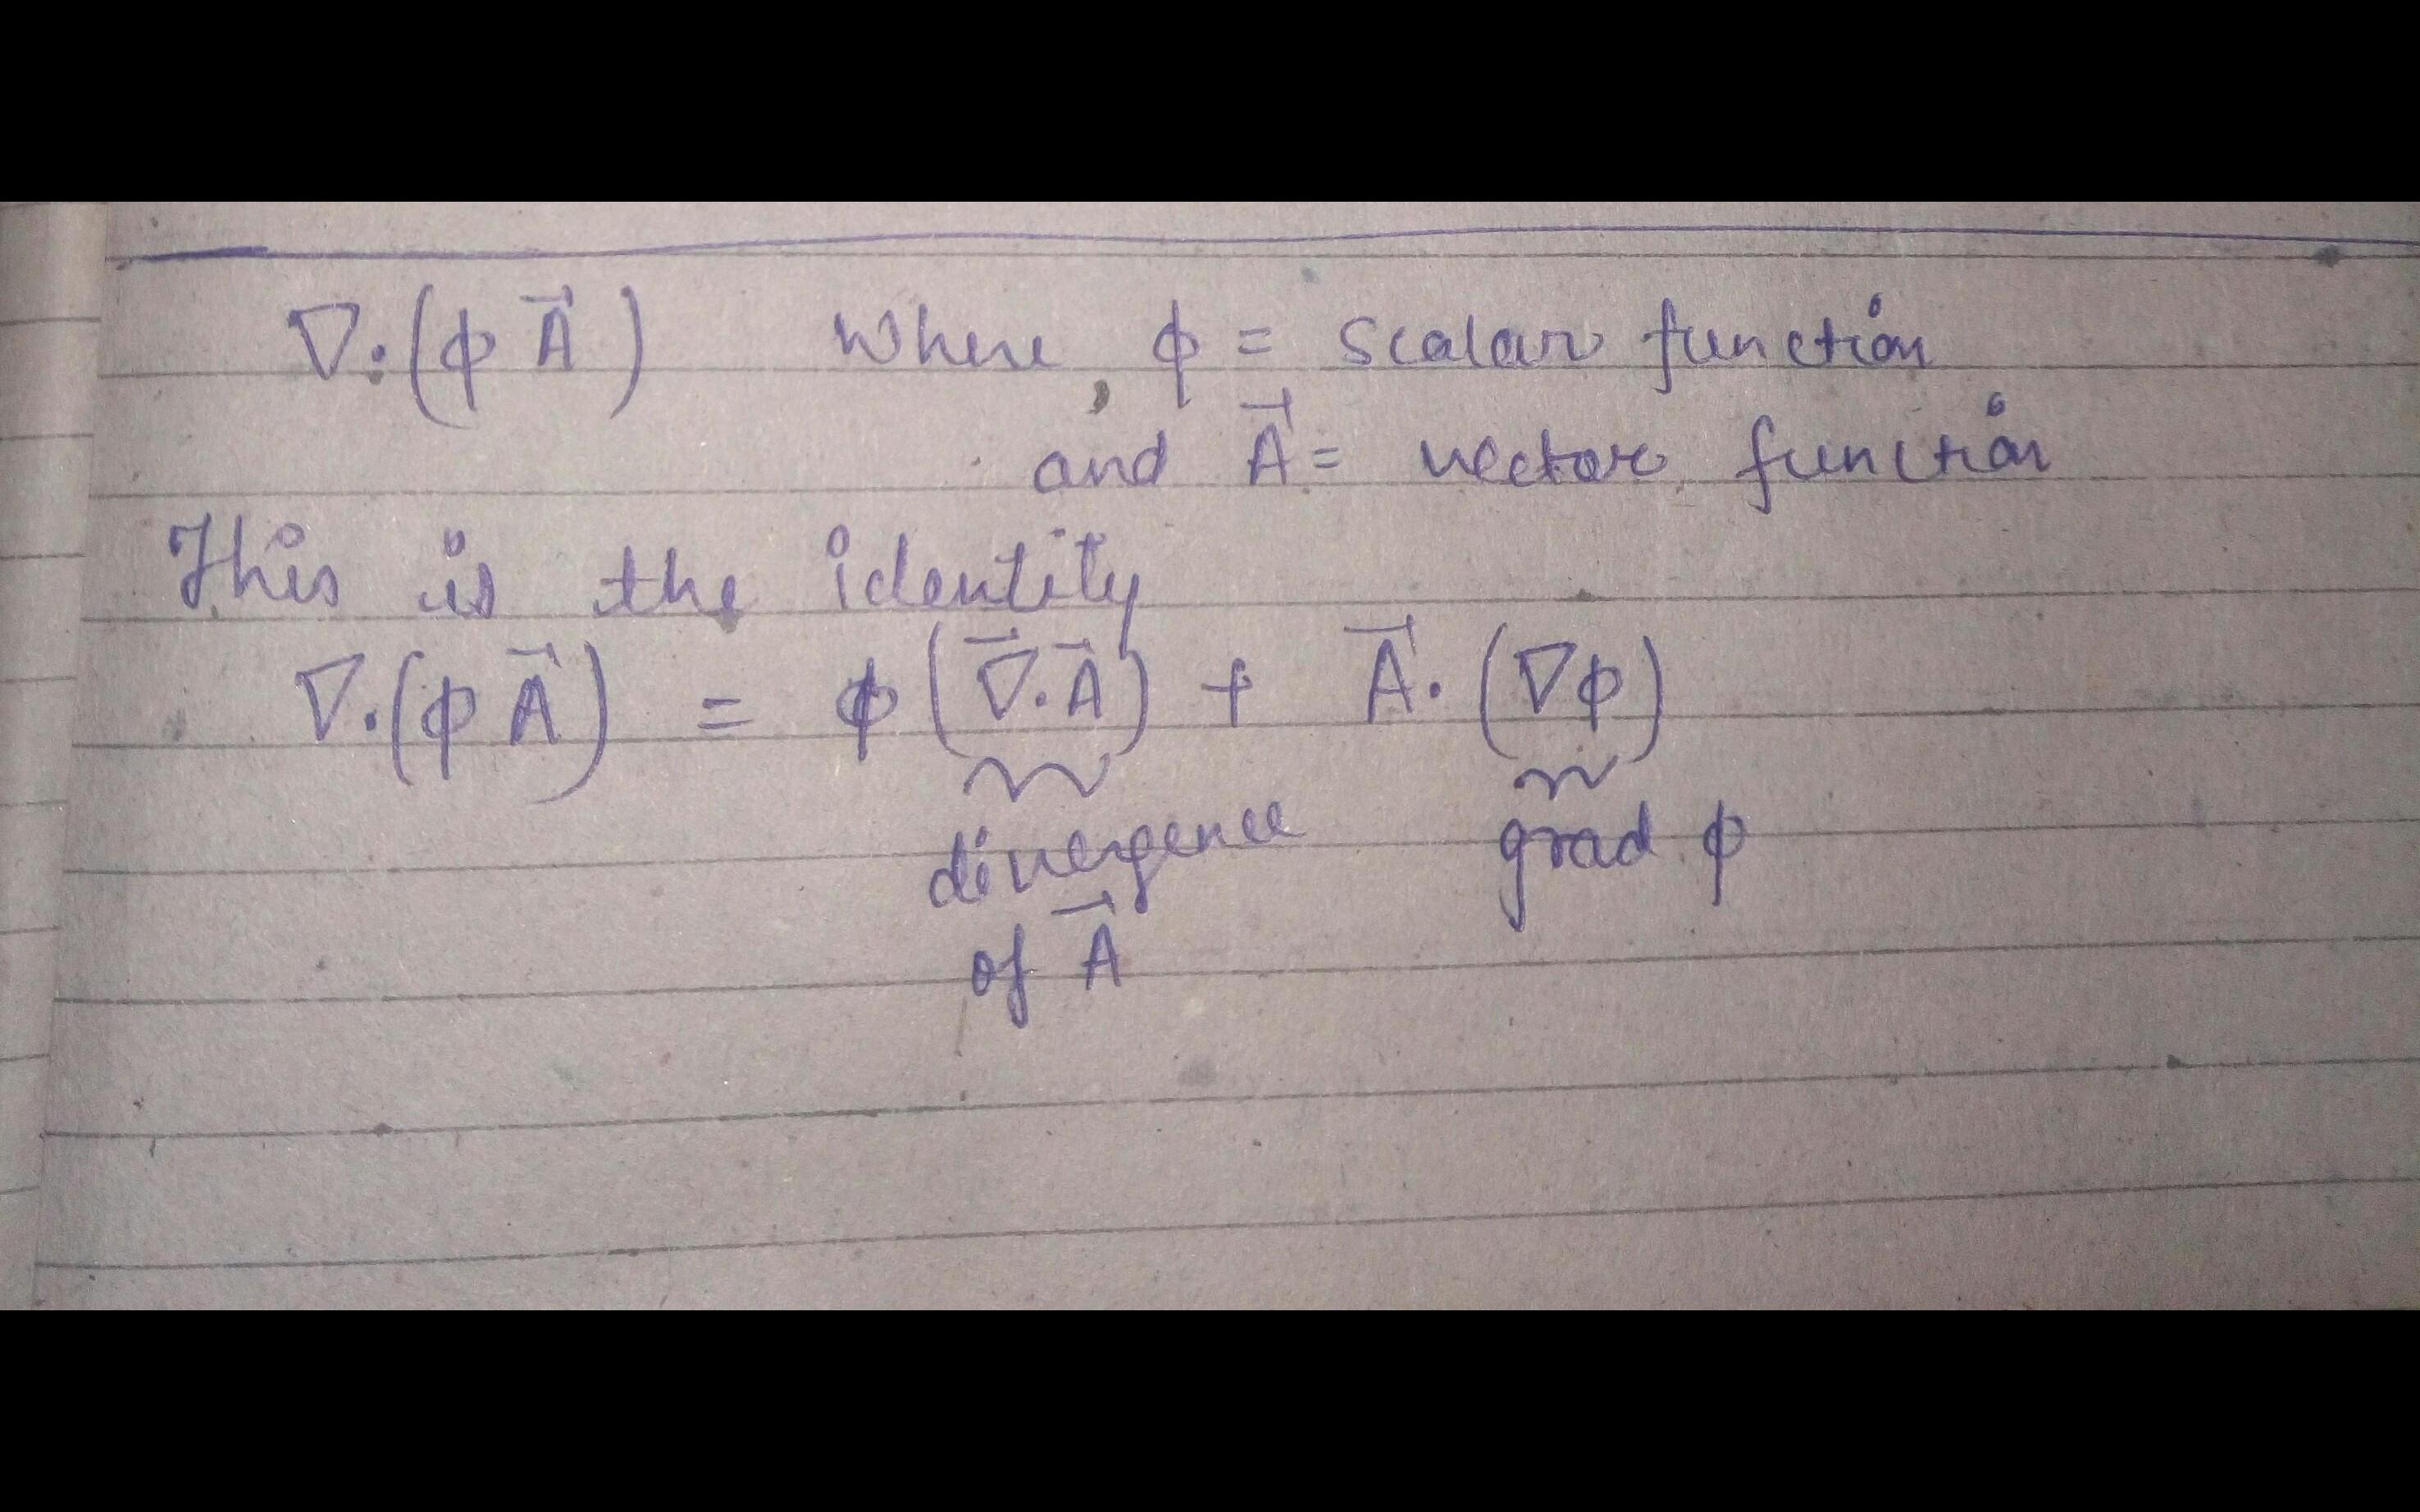 ∇·(ϕ A⃗) Where, ϕ = scalar function
and A⃗ = vector function
This is the identity
∇·(ϕ A⃗) = ϕ (∇⃗·A⃗) + A⃗·(∇ϕ)
divergence grad ϕ
of A⃗